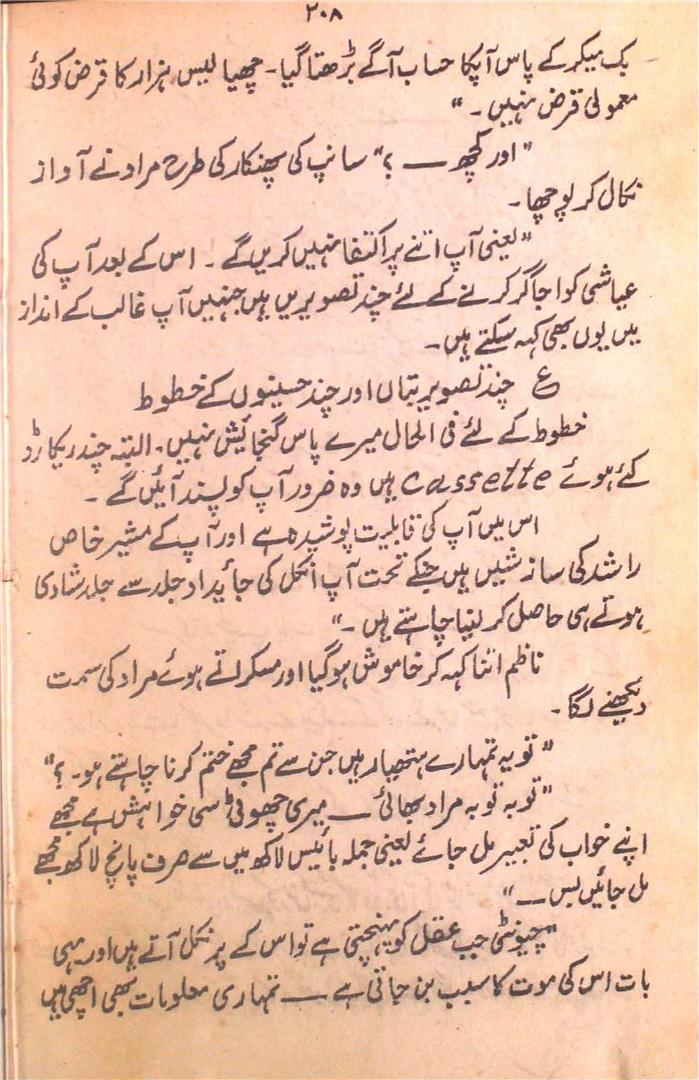 ۲۰۸
بک میکر کے پاس آپکا حساب آگے بڑھتا گیا۔ چھیالیس ہزار کا قرض کوئی
معمولی قرض نہیں۔"
"اور کچھ ــــ ؟" سانپ کی پھنکار کی طرح مراد نے آواز
نکال کر پوچھا۔
"یعنی آپ اتنے پر اکتفا نہیں کریں گے۔ اس کے بعد آپ کی
عیاشی کو اجاگر کرنے کے لئے چند تصویریں ہیں جنہیں آپ غالب کے انداز
میں یوں بھی کہہ سکتے ہیں۔
ع چند تصویر بتاں اور چند حسینوں کے خطوط
خطوط کے لئے فی الحال میرے پاس گنجائش نہیں۔ البتہ چند ریکارڈ
کئے ہوئے cassette ہیں وہ ضرور آپ کو پسند آئیں گے۔
اس میں آپ کی قابلیت پوشیدہ ہے اور آپ کے مشیر خاص
راشد کی سازشیں ہیں جنکے تحت آپ انکل کی جائیداد جلد سے جلد شادی
ہوتے ہی حاصل کر لینا چاہتے ہیں۔"
ناظم اتنا کہہ کر خاموش ہو گیا اور مسکراتے ہوئے مراد کی سمت
دیکھنے لگا۔
"تو یہ تمہارے ہتھیار ہیں جن سے تم مجھے ختم کرنا چاہتے ہو۔؟"
"توبہ توبہ مراد بھائی ــــ میری چھوٹی سی خواہش ہے مجھے
اپنے خواب کی تعبیر مل جائے یعنی جملہ بائیس لاکھ میں سے صرف پانچ لاکھ مجھے
مل جائیں بس ــــ"
"چیونٹی جب عقل کو پہنچتی ہے تو اس کے پر نکل آتے ہیں اور یہی
بات اس کی موت کا سبب بن جاتی ہے ــــ تمہاری معلومات بھی اچھی ہیں